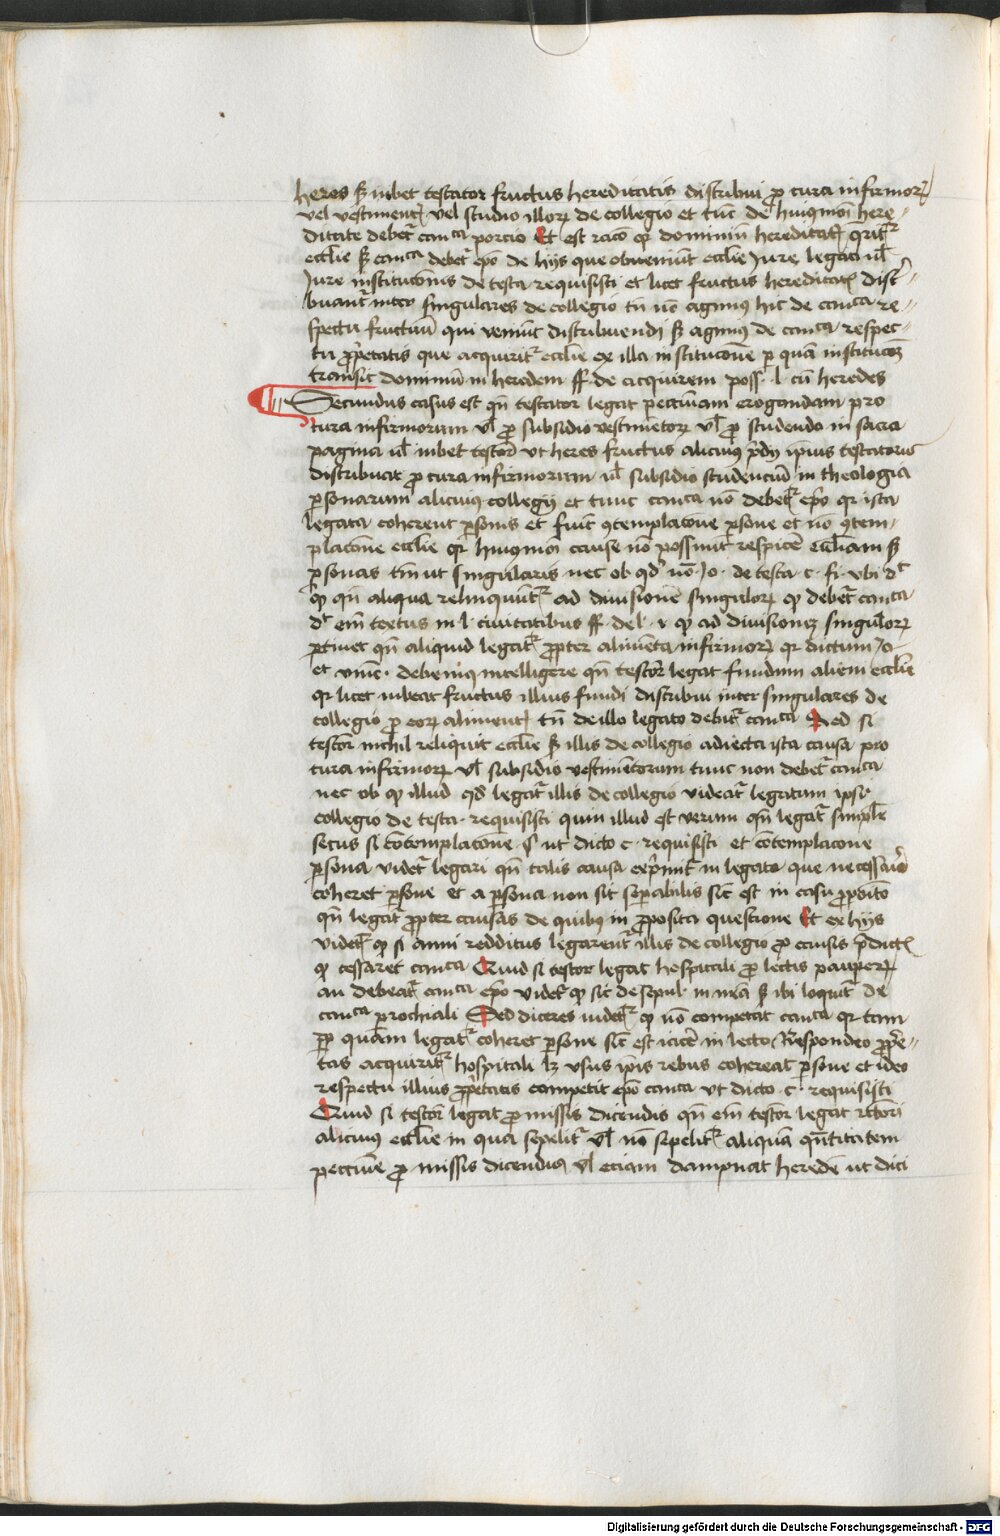 heres sꝫ iubet testator fructus hereditatis distribui ꝓ cura infirmoꝝ
vel vestimentꝭ vel studio illoꝝ de collegio et tūc de huiꝰmōi here-
ditate debetᷣ canᶜᵃ porcio Et est racō qꝛ dominiū hereditatꝭ q̄ritᷣ
ecclīe sꝫ canᶜᵃ debetᷣ ep̄o de hijs que obueniūt ecclīe Jure legati uł
Jure institucōnis de testa requisisti et licet fructus hereditatꝭ dist̄-
buantᷣ inter singulares de collegio tn̄ nō agimꝰ hic de canᶜᵃ re-
spectu fructuū qui veniūt distribuendi sꝫ agimꝰ de canᶜᵃ respec-
tu ꝓp̄etatis que acquiritᷣ ecclīe ex illa institucōne ꝑ quā institucōꝫ
transit dominiū in heredem ff de acquirem poss l cū heredes
Secundus casus est qn̄ testator legat pecuniam erogandam pro
cura infirmorum uł ꝓ subsidio vestimētoꝝ uł ꝓ studendo in sacra
pagina uł iubet testor ut heres fructus alicuiꝰ p̄dij ipsius testatoris
distribuat ꝓ cura infirmorum uł subsidio studenciū in theologia
ꝑsonarum alicuiꝰ collegij et tunc canᶜᵃ nō debetᷣ ep̄o qꝛ ista
legata coherent ꝑsonis et fiūt ꝯtemplacōne ꝑsone et nō ꝯtem-
placōne ecclīe qꝛ huiꝰmōi cause nō possunt respicē ecclīam sꝫ
ꝑsonas tm̄ ut singularis nec ob qd̓ nō Jo de testa c fi ubi dᶜ
ꝙ qn̄ aliqua relinquūtᷣ ad diuisionē singuloꝝ ꝙ debetᷣ canᶜᵃ
dᶜ em̄ textus in l ciuitatibus ff de l i ꝙ ad diuisionꝫ singuloꝝ
ꝑtinet qn̄ aliquid legatᷣ ꝓpter alimēta infirmoꝝ qꝛ dictum Jo
debemꝰ intelligere qn̄ testor legat fundum alicui ecclīe
qꝛ licet iubeat fructus illius fundi distribui inter singulares de
collegio ꝓ eoꝝ alimentꝭ tn̄ de illo legato debetᷣ canᶜᵃ Sed si
testor nichil reliquit ecclīe sꝫ illis de collegio adiecta ista causa pro
cura infirmoꝝ uł subsidio vestimētorum tunc non debetᷣ canᶜᵃ
nec ob ꝙ illud qd̓ legatᷣ illis de collegio videatᷣ legatum ipsi
collegio de testa requisisti quia illud est verum qn̄ legatᷣ simplr̄
secus si cōtemplacōne ut dicto c requisisti et cōtemplacōne
ꝑsona videtᷣ legari qn̄ talis causa exp̄mitᷣ in legato que necessario
coheret ꝑsone et a ꝑsona non sit seꝑabilis sic̄ est in casu ꝓposito
qn̄ legatᷣ ꝓpter causas de quibꝰ in ꝓposita questione Et ex hijs
videtᷣ ꝙ si anni redditus legarentᷣ illis de collegio ꝓ causis p̄dictꝭ
ꝙ cessaret canᶜᵃ Quid si testor legat hospitali ꝓ lectis pauperꝝ
an debeatᷣ canᶜᵃ ep̄o videtᷣ ꝙ sic de sepul in nr̄a sꝫ ibi loquitᷣ de
canᶜᵃ ꝑrochiali Sed diceres uidetᷣ ꝙ nō competat canᶜᵃ qꝛ causa
ꝓpter quam legatᷣ coheret ꝑsone sic̄ est iacē in lecto Respondeo ꝓp̄e-
tas acquiritᷣ hospitali lꝫ usus ip̄is rebus cohereat ꝑsone et ideo
respectu illius ꝓp̄etatis competit ep̄o canᶜᵃ ut dicto c requisisti
Quid si testor legat ꝓ missis dicendis qn̄ em̄ testor legat rectori
alicuiꝰ ecclīe in qua sepelitᷣ uł nō sepelitᷣ aliquā qn̄titatem
pecunie ꝓ missis dicendis uł eciam dampnat heredē ut dici
Digitalisierung gefördert durch die Deutsche Forschungsgemeinschaft - DFG